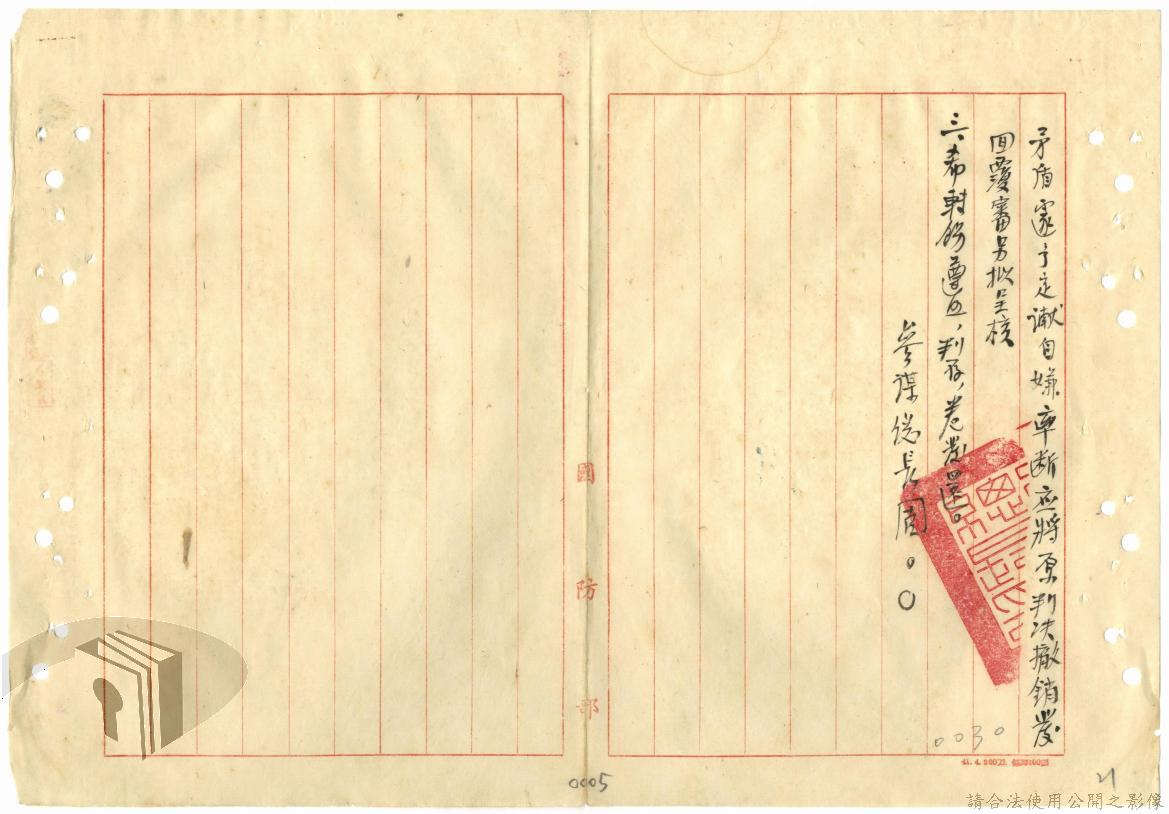 矛盾遽予定讞自嫌率斷应將原判决撤銷發
回覆審另拟呈核
三、希転飭遵照，判存，卷發還。
參謀總長周○○
國防部
0030
0005
21
請合法使用公開之影像